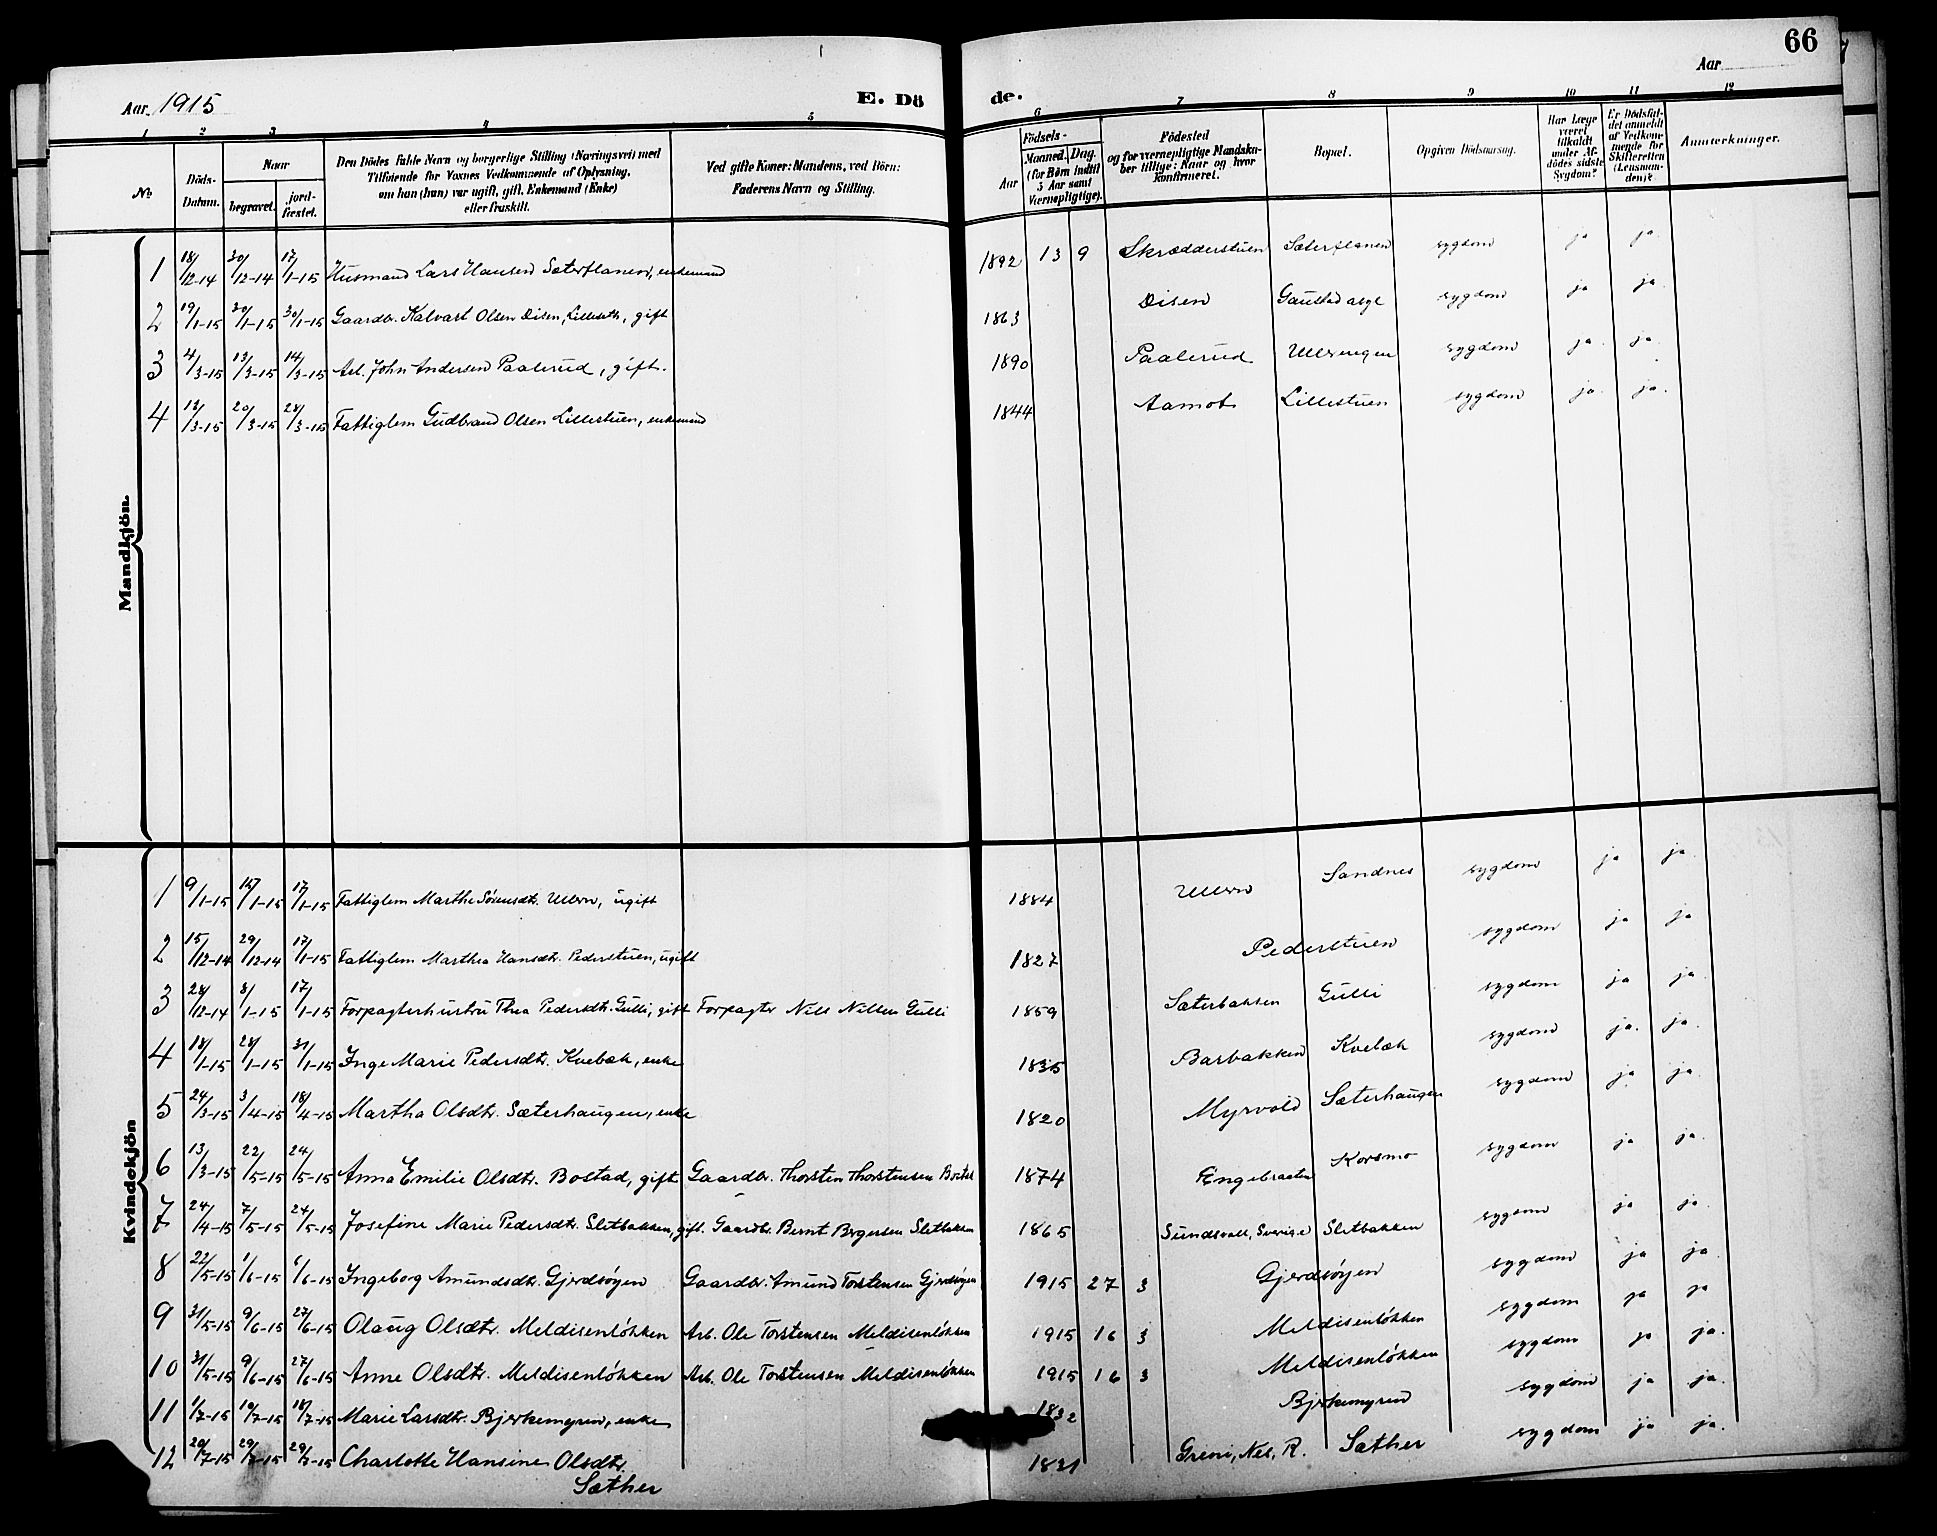 66
Aar 1915
E. Dö
de.
Aar
1 2 3 4 5 6 7 8 9 10 11 12
No.
Döds-Datum.
Naar
begravet.
jord-fæstet.
Den Dödes fulde Navn og borgerlige Stilling (Næringsvei) med
Tilföiende for Voxnes Vedkommende af Oplysning,
om hun (han) var ugift, gift, Enkemand (Enke)
eller fraskilt.
Ved gifte Koner: Mandens, ved Börn:
Faderens Navn og Stilling.
Födsels-
Aar
Maaned. Dag.
(for Börn indtil
3 Aar samt
Værnepligtige).
Födested
og for værnepligtige Mandska-
ber tillige: Naar og hvor
konfirmeret.
Bopæl.
Opgiven Dödsaarsag.
Har Læge
været
tilkaldt
under Af-
dödes sidste
Sygdom?
Er Dödsfal-
det anmeldt
af Vedkom-
mende for
Skifteretten
(Lensman-
den)?
Anmærkninger.
Mandkjön.
1 18/12-14 30/12-14 17/1-15 Husmand Lars Hansen Sæterflanen, enkemand 1892 13 9 Skrædderstuen Sæterflanen sygdom ja ja.
2 19/1-15 30/1-15 30/1-15 Gaardbr. Kalvart Olsen Disen, Lilleseth, gift 1863 Disen Gaustad asyl sygdom ja ja.
3 4/3-15 13/3-15 14/3-15 Arb. John Andersen Paalerud, gift. 1890 Paalerud Ullerengen sygdom ja. ja.
4 12/3-15 20/3-15 28/3-15 Fattiglem Gudbrand Olsen Lillestuen, enkemand 1844 Aamot Lillestuen sygdom ja. ja.
Kvindekjön
1 9/1-15 /1-15 17/1-15 Fattiglem Marthe Sörensdtr. Ullern, ugift 1884 Ullern Sandnes sygdom ja ja.
2 15/12-14 29/12-14 17/1-15 Fattiglem Marthea Hansdtr. Pederstuen, ugift 1827 Pederstuen sygdom ja ja
3 28/12-14 8/1-15 17/1-15 Forpagterhustru Thea Pedersdtr. Gulli, gift Forpagter Nils Nilsen Gulli 1859 Sæterbakken Gulli sygdom ja ja
4 18/1-15 28/1-15 31/1-15 Inge Marie Pedersdtr. Kvebæk, enke 1835 Barbakken Kvebæk sygdom ja. ja.
5 24/3-15 3/4-15 18/4-15 Martha Olsdtr. Sæterhaugen, enke 1820 Myrvold Sæterhaugen sygdom ja ja.
6 13/3-15 22/5-15 24/5-15 Anna Emilie Olsdtr. Bostad, gift Gaardbr. Thorsten Thorstensen Bostad 1874 Engebraaten Korsmo sygdom ja ja.
7 24/4-15 7/5-15 24/5-15 Josefine Marie Pedersdtr. Sletbakken, gift. Gaardbr. Bernt Bergersen Sletbakken 1865 Sundsvall, Sverige Sletbakken sygdom ja ja.
8 22/5-15 1/6-15 6/6-15 Ingeborg Amundsdtr. Gjerdsöyen Gaardbr. Amund Torstensen Gjerdsöyen 1915 27 3 Gjerdsöyen sygdom ja ja.
9 31/5-15 9/6-15 27/6-15 Olaug Olsdtr. Meldisenlökken Arb. Ole Torstensen Meldisenlökken 1915 16 3 Meldisenlökken sygdom ja ja
10 31/5-15 9/6-15 27/6-15 Anne Olsdtr. Meldisenlökken Arb. Ole Torstensen Meldisenlökken 1915 16 3 Meldisenlökken sygdom ja ja.
11 1/7-15 10/7-15 18/7-15 Marie Larsdtr. Bjerkemyren, enke 1832 Bjerkemyren sygdom ja ja.
12 20/7-15 29/7-15 29/7-15 Charlotte Hansine Olsdtr. 1821 Greni, Nes, R. Sæther sygdom ja ja.
Sæther